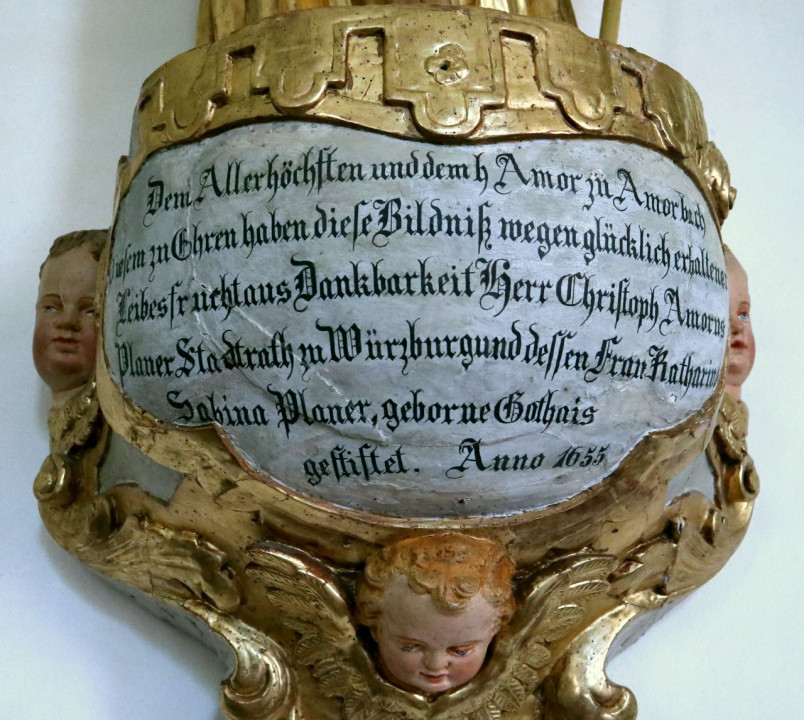 Dem Allerhöchſten und dem h Amor zu Amorbach
dieſem zu Ehren haben dieſe Bildniß wegen glücklich erhaltener
Leibesfrucht aus Dankbarkeit Herr Chriſtoph Amorus
Planer Stadtrath zu Würzburg und deſſen Frau Katharina
Sabina Planer, geborne Gothais
geſtiftet. Anno 1655